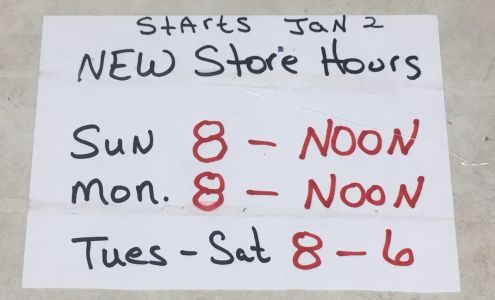 StArts JaN 2
NEW Store Hours
SuN 8 - NOON
Mon. 8 - NOON
Tues - Sat 8 - 6